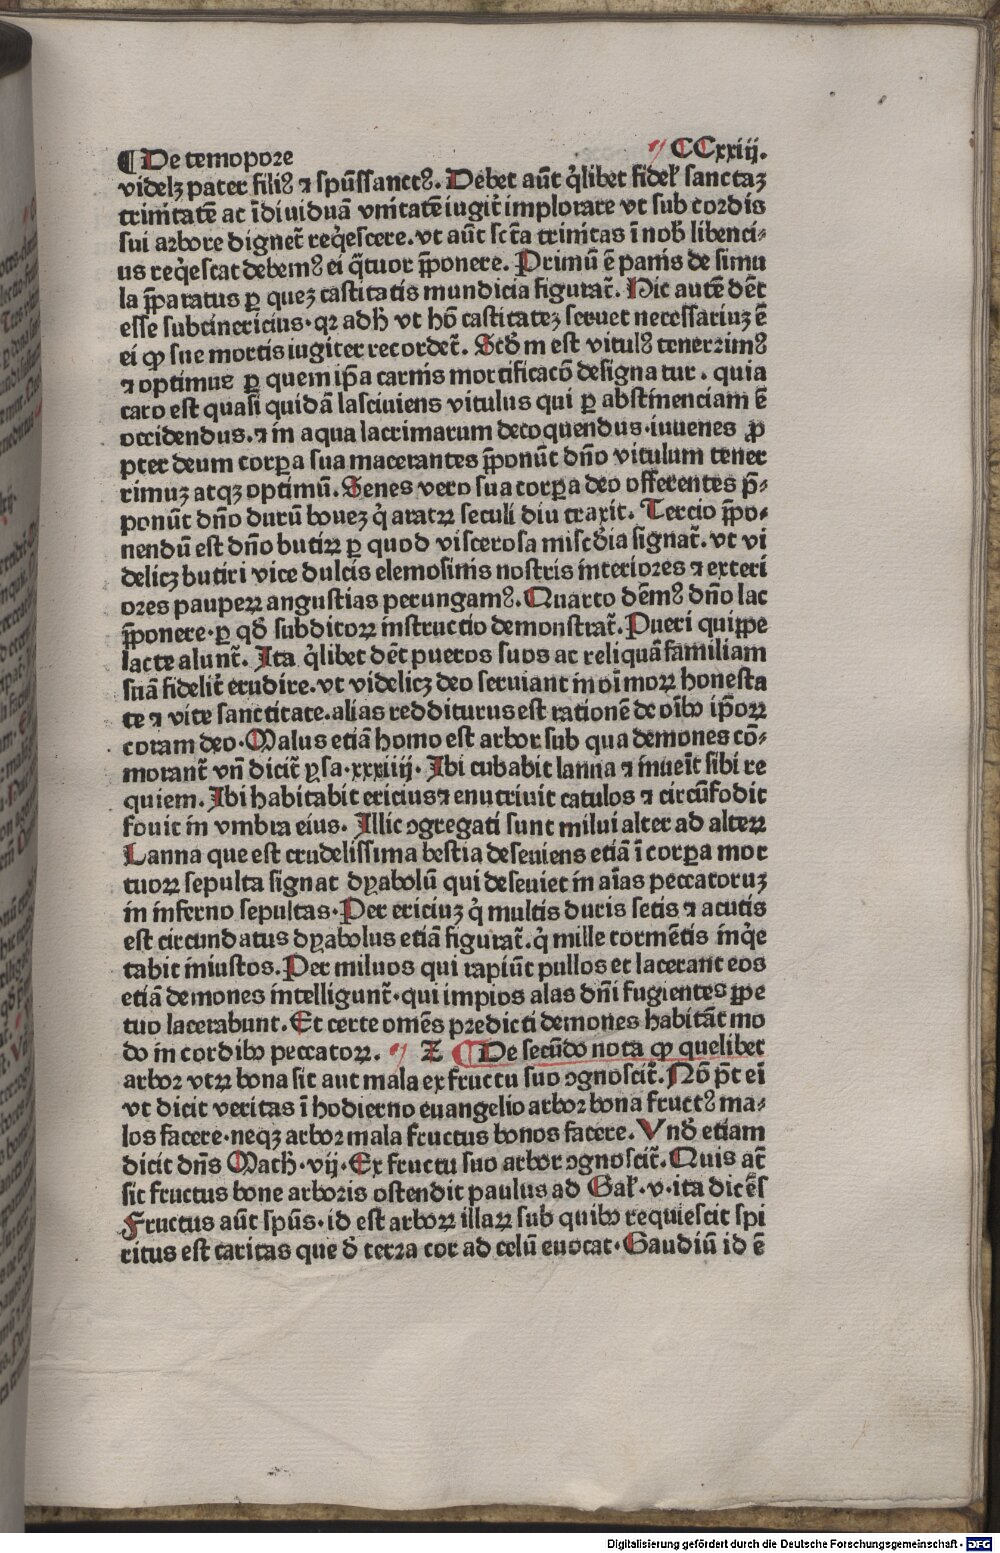 ¶ De temopore CCxxiij.
videlꝫ pater filiꝰ ⁊ spūssanctꝰ. Debet aūt q̄libet fidel̛ sanctaꝫ
trinitatē ac īdiuiduā vnitatē iugit̄ implorare vt sub cordis
sui arbore dignet̄ req̄escere. vt aūt scta trinitas ī nob̄ libenci⸗
us req̄escat debemꝰ ei q̄tuor p̄ponere. Primū ē panis de simu
la p̄paratus ꝑ quez castitatis mundicia figurat̄. Hic autē dēt
esse subcinericius. qꝛ adh̄ vt hō castitateꝫ seruet necessariuꝫ ē
ei ꝙ sue mortis iugiter recordet̄. Scd̄m est vitulꝰ tenerrimꝰ
⁊ optimus ꝑ quem ip̄a carnis mortificacō designatur. quia
caro est quasi quidā lasciuiens vitulus qui ꝑ abstinenciam ē
occidendus. ⁊ in aqua lacrimarum decoquendus. iuuenes ꝓ
pter deum corꝑa sua macerantes p̄ponūt dn̄o vitulum tener
rimuꝫ atqꝫ optimū. Senes vero sua corꝑa deo offerentes p̄⸗
ponūt dn̄o durū boueꝫ q̄ aratꝝ seculi diu traxit. Tercio p̄po⸗
nendū est dn̄o butiꝝ ꝑ quod viscerosa misc̄dia signat̄. vt vi
delicꝫ butiri vice dulcis elemosinis nostris interiores ⁊ exteri
ores pauperꝝ angustias perungamꝰ. Quarto dēmꝰ dn̄o lac
p̄ponere. ꝑ qd̄ subditoꝝ instructio demonstrat̄. Pueri quippe
lacte alunt̄. Ita q̄libet dēt pueros suos ac reliquā familiam
suā fidelit̄ erudire. vt videlicꝫ deo seruiant in oī moꝝ honesta
te ⁊ vite sanctitate. alias redditurus est rationē de oībꝰ ip̄oꝝ
coram deo. Malus etiā homo est arbor sub qua demones cō⸗
morant̄ vn̄ dicit̄ ysa. xxxiiij. Ibi cubabit lanna ⁊ inueīt sibi re
quiem. Ibi habitabit ericius ⁊ enutriuit catulos ⁊ circūfodit
fouit in vmbra eius. Illic ↄgregati sunt milui alter ad alteꝝ
Lanna que est crudelissima bestia deseuiens etiā ī corꝑa mor
tuoꝝ sepulta signat dyabolū qui deseuiet in aīas peccatoruꝫ
in inferno sepultas. Per ericiuꝫ q̄ multis duris setis ⁊ acutis
est circundatus dyabolus etiā figurat̄. q̄ mille tormētis inq̄e
tabit iniustos. Per miluos qui rapiūt pullos et lacerant eos
etiā demones intelligunt̄. qui impios alas dn̄i fugientes ꝑpe
tuo lacerabunt. Et certe omēs predicti demones habitāt mo
do in cordibꝰ peccatoꝝ. Z ¶ De secūdo nota ꝙ quelibet
arbor vtꝝ bona sit aut mala ex fructu suo ↄgnoscit̄. Nō p̄t eī
vt dicit veritas ī hodierno euangelio arbor bona fructꝰ ma⸗
los facere. neqꝫ arbor mala fructus bonos facere. Vnd̄ etiam
dicit dn̄s Math̄. vij. Ex fructu suo arbor ↄgnoscit̄. Quis at̄
sit fructus bone arboris ostendit paulus ad Gal̛. v. ita dicēs
Fructus aūt spūs. id est arboꝝ illaꝝ sub quibꝰ requiescit spi
ritus est caritas que d̄ terra cor ad celū euocat. Gaudiū id ē
Digitalisierung gefördert durch die Deutsche Forschungsgemeinschaft - DFG